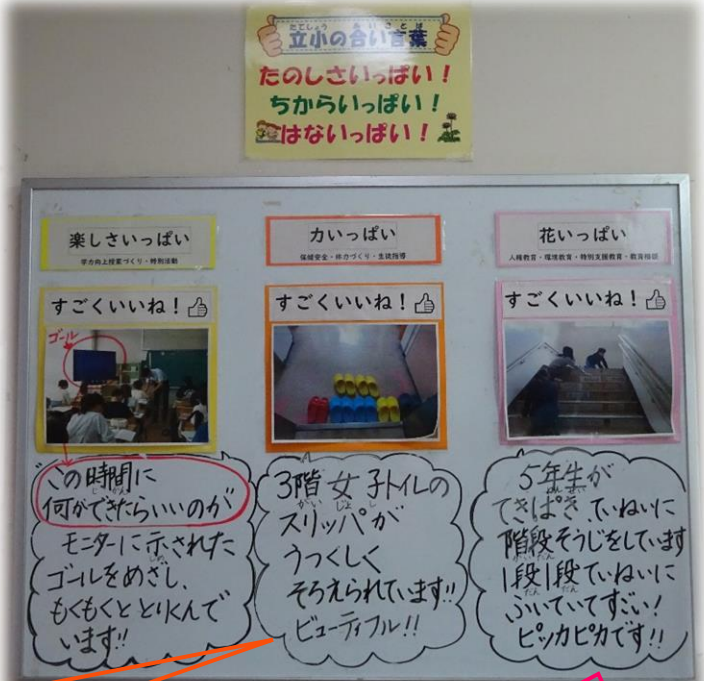 立小の合い言葉
たてしょう あ い こ と ば
たのしさいっぱい！
ちからいっぱい！
はないっぱい！
楽しさいっぱい
学力向上授業づくり・特別活動
すごくいいね！
ゴール
この時間に
じかん
何ができたらいいのか
なに
モニターに示された
しめ
ゴールをめざし、
もくもくととりくんで
います!!
力いっぱい
保健安全・体力づくり・生徒指導
すごくいいね！
3階女子トイレの
がい じょ し
スリッパが
うつくしく
そろえられています!!
ビューティフル!!
花いっぱい
人権教育・環境教育・特別支援教育・教育相談
すごくいいね！
5年生が
ねんせい
てきぱき、ていねいに
階段そうじをしています
かいだん
1段1段ていねいに
だん だん
ふいていてすごい！
ピッカピカです!!